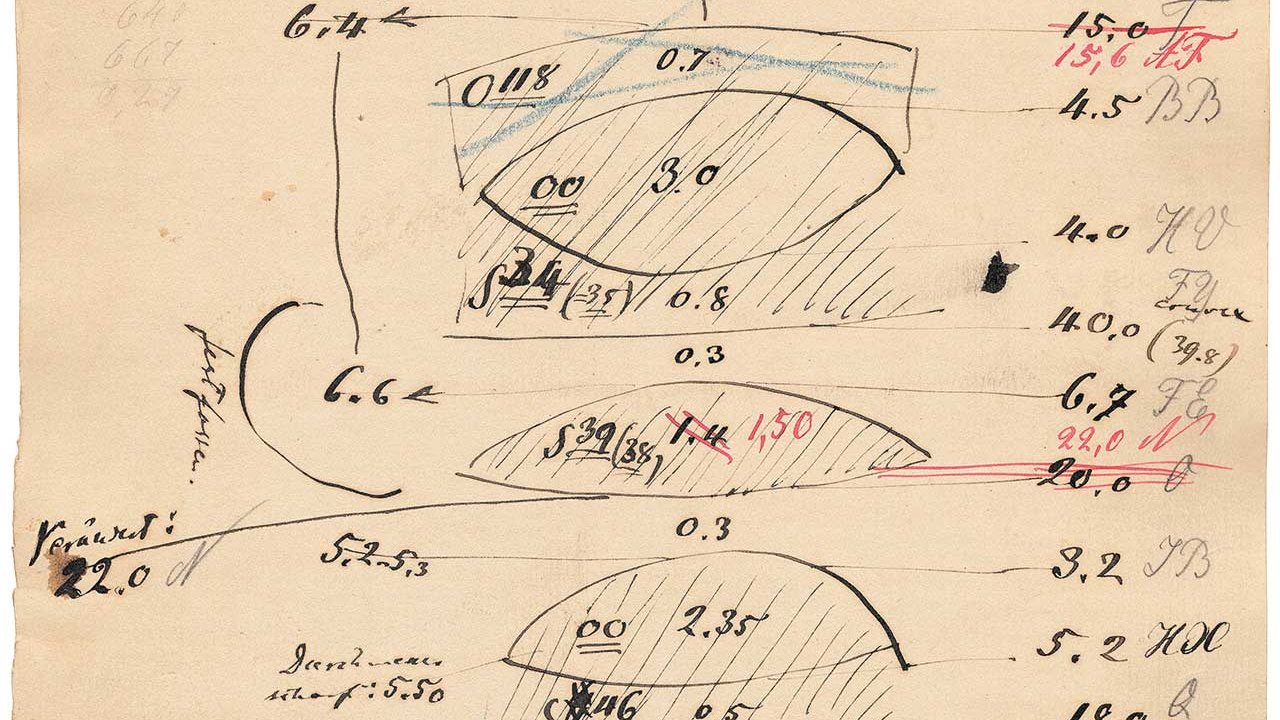 648
667
6.4
15.0 F
15,6 AF
O 118
0.7
4.5 BB
00
3.0
4.0 HV
S 34 (35)
0.8
FY
40,0
(39.8)
0.3
6.6
6.7 FE
fest fassen.
S 39 (38)
1.4
1,50
22,0 N
20,0 O
Verändert:
22.0 N
0.3
5.2-5,3
3.2 JB
00
2.35
5.2 HX
Durchmesser
scharf: 5.50
46
0.5
Q